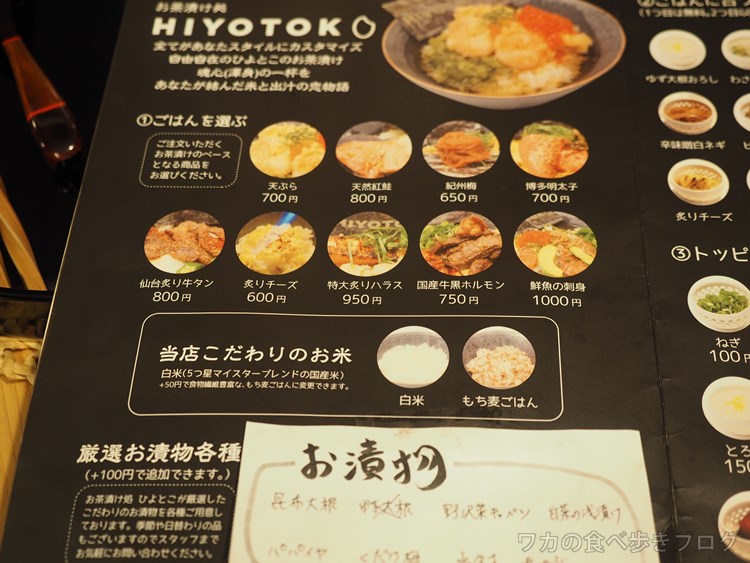 お茶漬け処
HIYOTOKO
全てがあなたスタイルにカスタマイズ
自由自在のひよとこのお茶漬け
魂心(渾身)の一杯を
あなたが結んだ米と出汁の恋物語
①ごはんを選ぶ
ご注文いただく
お茶漬けのベース
となる商品を
お選びください。
天ぷら
700円
天然紅鮭
800円
紀州梅
650円
博多明太子
700円
仙台炙り牛タン
800円
炙りチーズ
600円
特大炙りハラス
950円
国産牛黒ホルモン
750円
鮮魚の刺身
1000円
当店こだわりのお米
白米(5つ星マイスターブレンドの国産米)
+50円で食物繊維豊富な、もち麦ごはんに変更できます。
白米
もち麦ごはん
厳選お漬物各種
(+100円で追加できます。)
お茶漬け処 ひよとこが厳選した
こだわりのお漬物を各種ご用意し
ております。季節や日替わりの品
もございますのでスタッフまで
お気軽にお問い合わせください。
お漬物
昆布大根
野沢菜キャベツ
白菜の浅漬け
パパイヤ
②ごはんに合う
(1つ目は無料、2つ目以
ゆず大根おろし
わさ
辛味噌白ネギ
炙りチーズ
③トッピ
ねぎ
100円
とろ
150
ワカの食べ歩きブログ